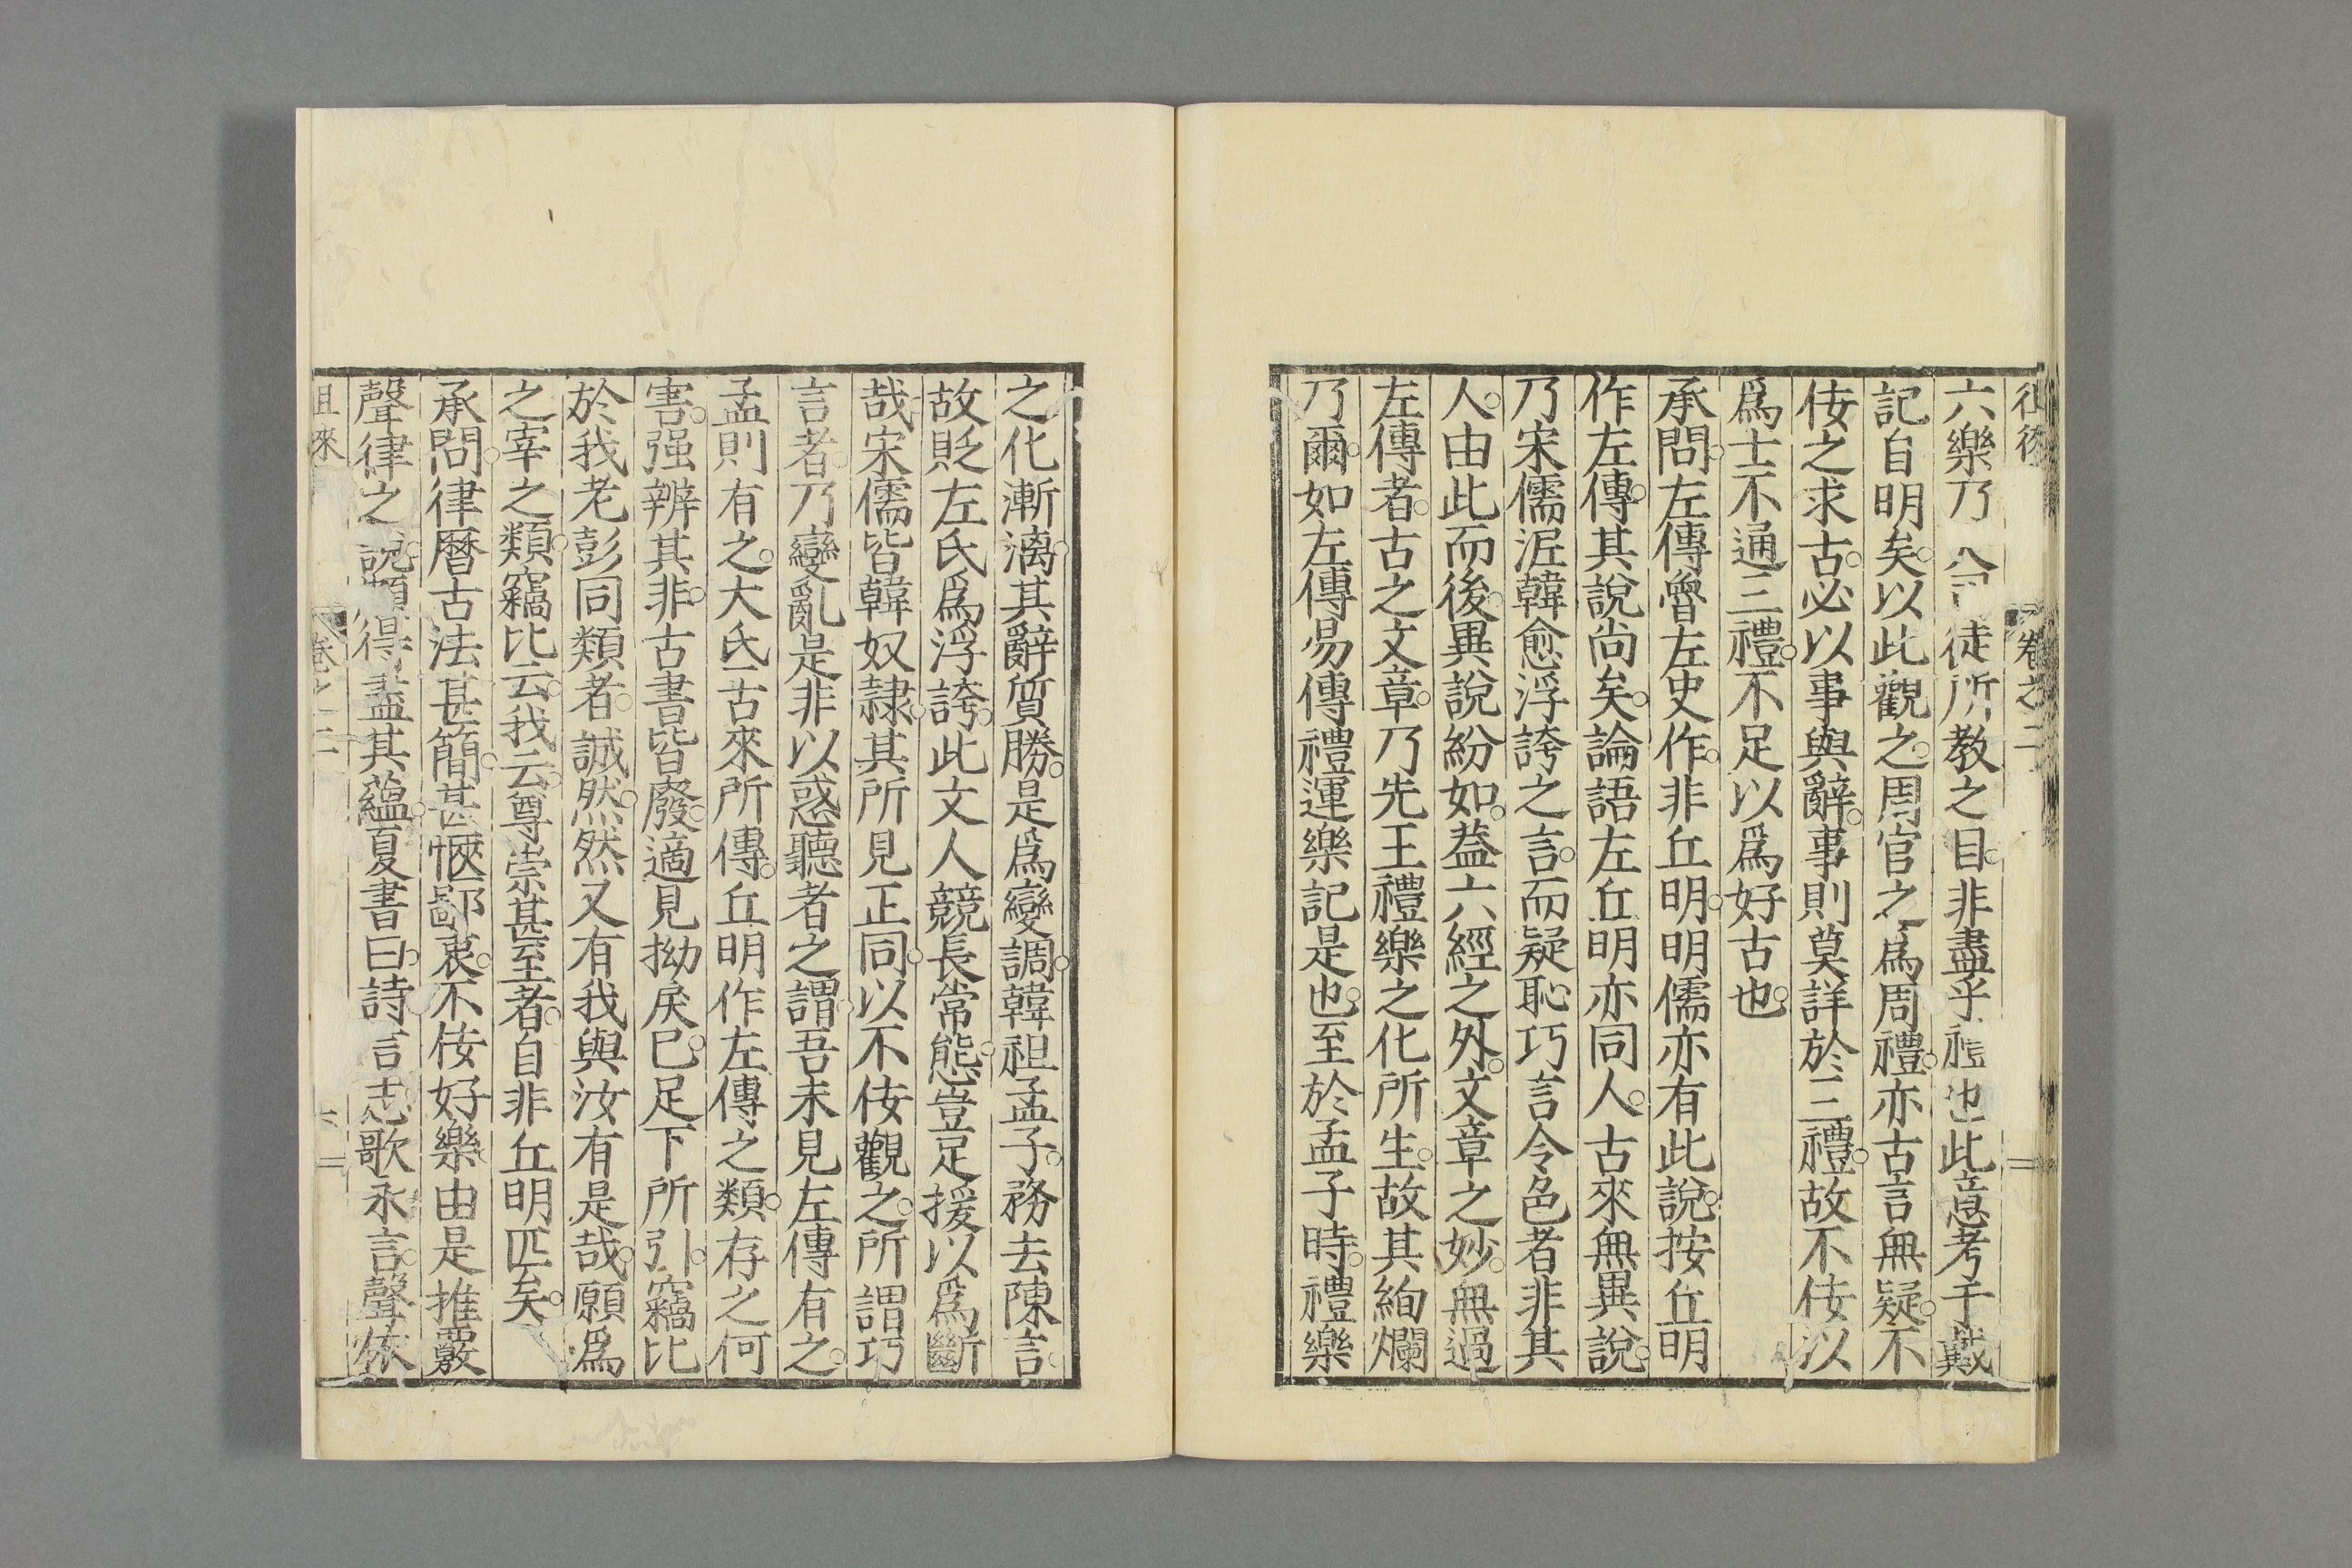 卷之二
六樂乃 徒所教之目。非盡乎禮也此意考于戴
記自明矣。以此觀之。周官之爲周禮。亦古言無疑。不
侫之求古。必以事與辭。事則莫詳於三禮。故不侫以
爲士不通三禮。不足以爲好古也。
承問。左傳魯左史作。非丘明。明儒亦有此說。按丘明
作左傳。其說尚矣。論語左丘明亦同人。古來無異說。
乃宋儒泥韓愈浮誇之言。而疑恥巧言令色者非其
人。由此而後。異說紛如。葢六經之外。文章之妙。無過
左傳者。古之文章。乃先王禮樂之化所生。故其絢爛
乃爾。如左傳易傳禮運樂記是也。至於孟子時。禮樂
之化漸漓。其辭質勝。是爲變調。韓祖孟子。務去陳言。
故貶左氏爲浮誇。此文人競長常態。豈足援以爲斷
哉。宋儒皆韓奴隷。其所見正同。以不侫觀之。所謂巧
言者。乃變亂是非以惑聽者之謂。吾未見左傳有之。
孟則有之。大氐古來所傳。丘明作左傳之類。存之何
害。强辨其非。古書皆廢。適見拗戾已。足下所引。竊比
於我老彭同類者。誠然。然又有我與汝有是哉。願爲
之宰之類。竊比云。我云。尊崇甚至者。自非丘明匹矣。
承問。律曆古法甚簡。甚愜鄙衷。不侫好樂。由是推覈
聲律之說。頗得盡其蘊。夏書曰。詩言志。歌永言。聲依
來 卷之二